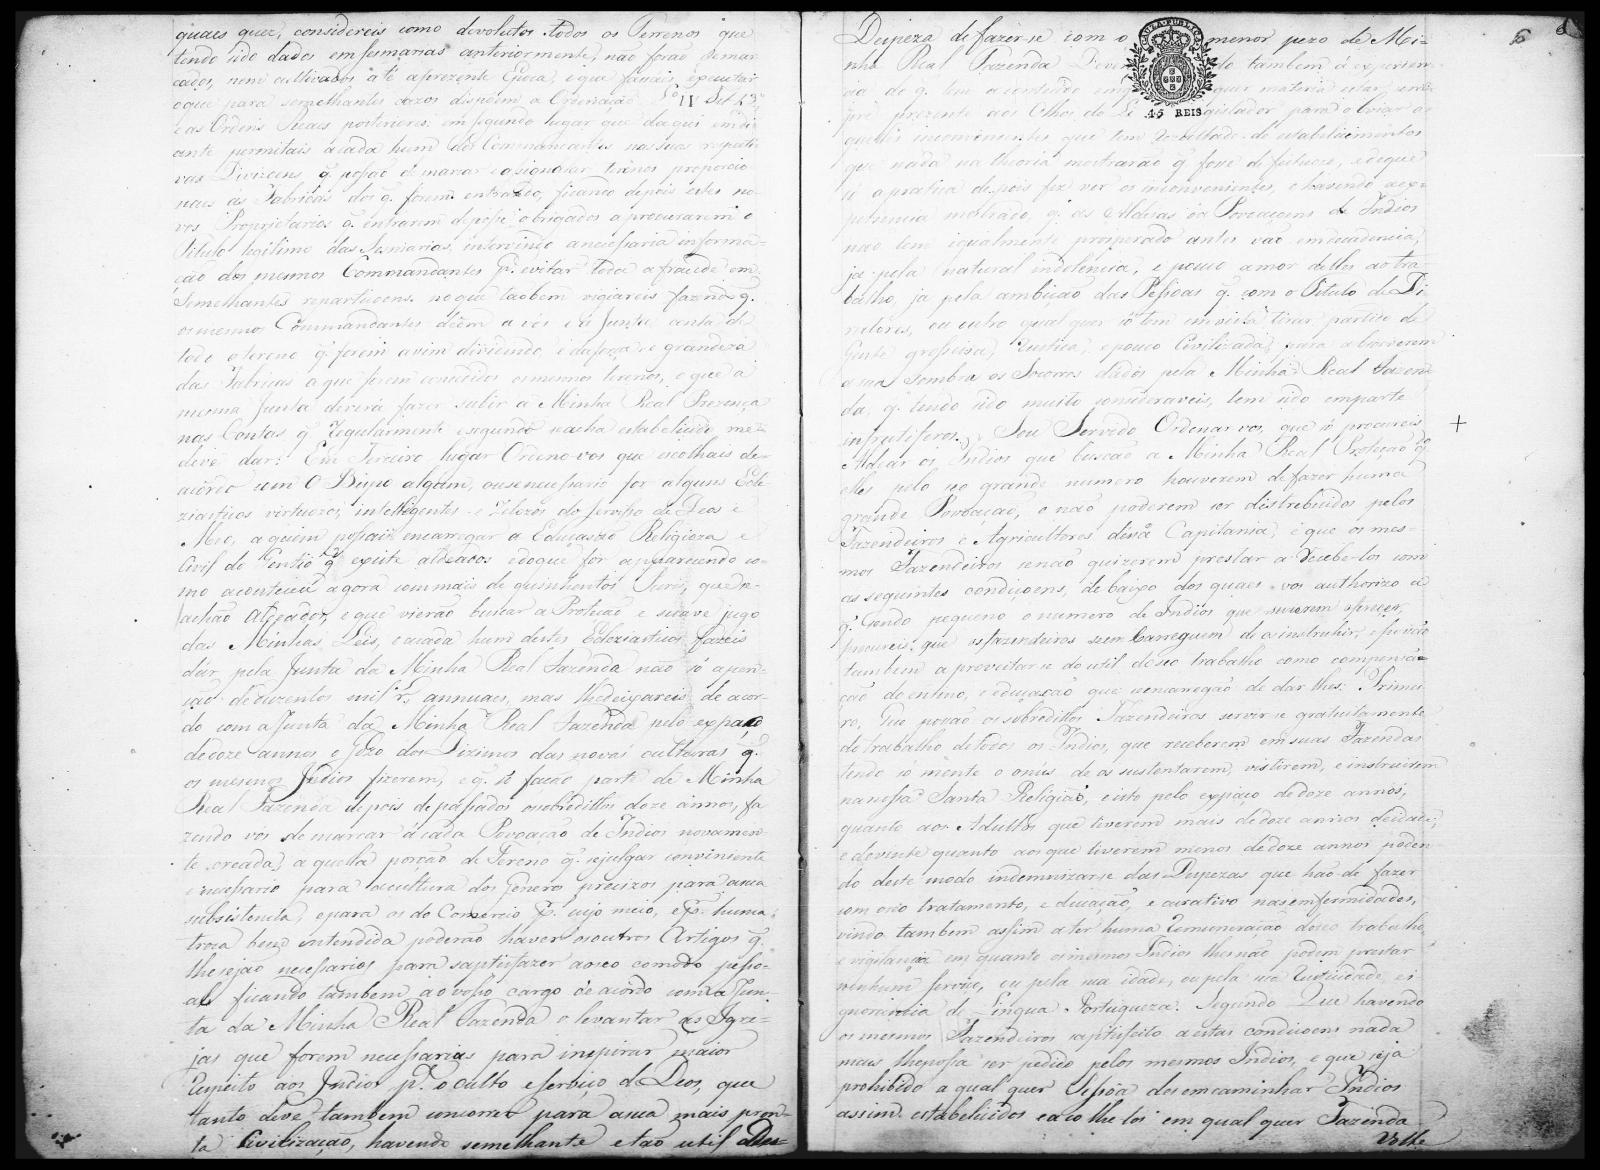 quaes quer, considereis como devolutos todos os Terrenos que
tendo sido dados em sesmarias anteriormente, não forão demar
cados, nem cultivados até a prezente Epoca, e que façais executar
o que para semelhantes cazos dispoem a Ordenação Lo IV
e as Ordens Reaes posteriores: em segundo lugar que daqui em di
ante permitais a cada hum dos Commandantes nas suas respecti
vas Divizoens q. possão demarcar e asignalar terenos proporcio
naes as Fabricas dos q. forem entrando, ficando depois estes no
vos Proprietarios q. entrarem de posse obrigados a procurarem o
Titulo legitimo das Sesmarias, intervindo a necessaria informa=
ção dos mesmos Commandantes pa. evitar toda a fraude em
Semelhantes repartiçoens, no que taobem vigiareis fazendo q.
os mesmos Commandantes dêem a vós e á Junta conta de
todo o tereno q. forem assim dividindo, e da força e grandeza
das Fabricas a que forem concedidos os mesmos terenos, e que a
mesma Junta deverá fazer subir a Minha Real Prezença
nas Contas q. regularmente e segundo se acha estabelecido me
deve dar: Em Terceiro lugar Ordeno-vos que escolhais de
acôrdo com o Bispo algum, ou se necessario for alguns Ecle
ziasticos virtuozos, intelligentes e Zelozos do serviço de Deos e
Meo, a quem possais encarregar a Educasão Religioza e
Civil do Gentio q. existe aldeados e do que for apparecendo co=
mo aconteceu agora com mais de quinhentos Puris, que se
achão Aldeados, e que vierão buscar a Proteção e suave jugo
das Minhas Leis, e a cada hum destes Eclesiasticos fareis
dar pela Junta da Minha Real Fazenda não só a pen-
ção de duzentos mil rs. annuaes, mas lhe deixareis de acor-
do com a Junta da Minha Real Fazenda pelo expaço
de doze annos o Gozo dos Dizimos das novas culturas q.
os mesmos Indios fizerem, e q. só farão parte de Minha
Real Fazenda depois de passados os sobreditos doze annos, fa
zendo vós demarcar á cada Povoação de Indios novamen
te creada, a quella porção de Tereno q. se julgar conviniente
e necessario para a cultura dos Generos precizos para a sua
subsistencia, e para os do Comercio pr. cujo meio, e pr. huma
troca bem intendida poderão haver os outros Artigos q.
lhe sejão necessarios para saptisfazer ao seo comodo pesso-
al, ficando tambem ao vosso cargo de acordo com a Jun-
ta da Minha Real Fazenda o levantar as Igre-
jas que forem necessarias para inspirar maior
Respeito aos Indios pa. o culto e serviço de Deos, que
tanto deve tambem concorrer para a sua mais pron-
ta Civilização, havendo semelhante e tão util Des=
6
Despeza de fazer-se com o menor pezo de Mi=
nha Real Fazenda. Devendo tambem á experien=
cia do q. tem acontecido em qual quer materia estar sem
pre prezente aos Olhos do Legislador para obviar a
quelles inconvenientes que tem rezultado de estabelecimentos
que nada na theoria mostrarão q. fosse defeituozo, e de que
só a pratica depois fez ver os inconvenientes, e havendo a ex=
periencia mostrado, q. as Aldeias ou Povoaçoens de Indios
não tem igualmente prosperado antes vão em decadencia,
ja pela natural indolencia, e pouco amor delles ao tra=
balho, ja pela ambição das Pessoas q. com o Titulo de Di
rectores, ou outro qual quer só tem em vista tirar partido de
Gente grosseira, rustica, e pouco Civilizada, para absorverem
a sua sombra os Socorros dados pela Minha Real Fazen
da, q. tendo sido muito consideraveis, tem sido em parte
infrutiferos. Sou Servido Ordenar vos, que só procureis
Aldear os Indios que buscão a Minha Real Proteção qdo
elles pelo seo grande numero houverem de fazer huma
grande Povoação, e não poderem ser distrebuidos pelos
Fazendeiros e Agricultores dessa Capitania, e que os mes-
mos Fazendeiros senão quizerem prestar a recebe-los com
as seguintes condiçoens, de baixo dos quaes vos authorizo a
q. sendo pequeno o numero de Indios que se vierem oferecer,
procureis, que os fazendeiros se em Carreguem de os instruhir, e possão
tambem aproveitar-se do util de seo trabalho como compensa=
ção do ensino, e educação que se encaregão de dar lhes: Primei
ro, Que possão os sobreditos Fazendeiros servir-se gratuitamente
do trabalho de todos os Indios, que receberem em suas Fazendas
tendo só mente o onus de os sustentarem, vistirem, e instruirem
na nossa Santa Religião, e isto pelo expaço de doze annos,
quanto aos Adultos que tiverem mais de doze annos de idade,
e de vinte quanto aos que tiverem menos de doze annos poden
do deste modo indemnizarse das Despezas que hão de fazer
com o seo tratamento, e educação, e curativo nas emfermidades,
vindo tambem assim a ter huma remuneração do seo trabalho,
e vigilancia em quanto os mesmos Indios lhe não podem prestar
nenhum serviço, ou pela sua idade, ou pela sua rusticidade, e i
gnorancia de Lingua Portugueza. Segundo Que havendo
os mesmos Fazendeiros saptisfeito a estas condiçoens nada
mais lhe possa ser pedido pelos mesmos Indios, e que seja
prohibido a qual quer Pessoa desemcaminhar Indios
assim estabelecidos e acolhe los em qual quer Fazenda
Volte
CAUZA PUBLICA
45 REIS
+